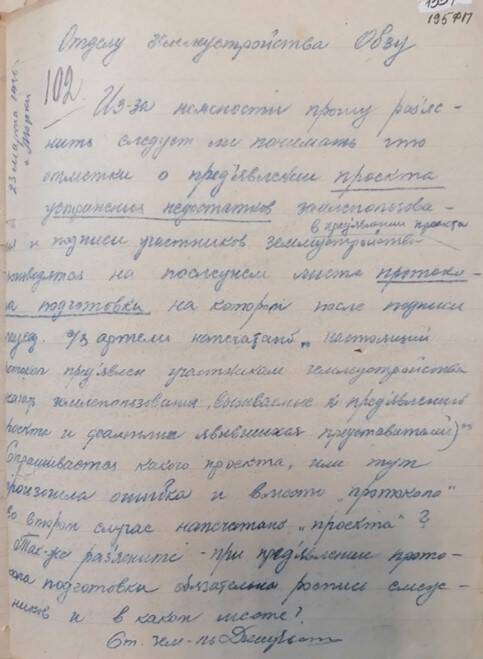 195ФП
Отделу Землеустройства ОблЗУ
102.
23 марта
Из-за неясности прошу раз'яс-
нить следует ли понимать что
отметки о пред'явлении проекта
устранения недостатков землепользова-
в пред'явлении проекта
и подписи участников землеустройства
производятся на последнем листе протоко-
ла подготовки на котором после подписи
с/х артели напечатано „настоящий
протокол пред'явлен участникам землеустройства
землепользования, вызываемые к пред'явлению
проекта и фамилии явившихся представителей)"
Спрашивается какого проекта, или тут
произошла ошибка и вместо „протокола"
во втором случае напечатано „проекта"?
Так-же раз'ясните - при пред'явлении прото-
кола подготовки обязательна роспись смеж-
ников и в каком месте?
Ст. зем-ль